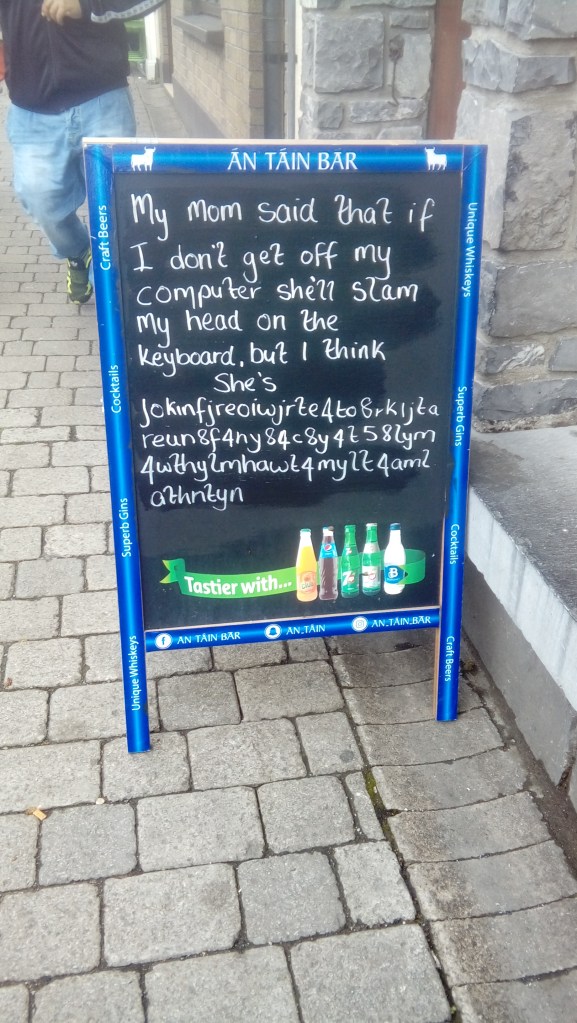 ÁN TÁIN BÁR
My mom said that if
I don't get off my
computer she'll slam
my head on the
keyboard, but I think
She's
Jokinfjreoiwjrte4to8rkljta
reun8f4ny84c8y4t58lym
4wthylmhawt4mylt4aml
athntyn
Tastier with...
AN TÁIN BÁR AN_TÁIN AN_TÁIN_BÁR
Craft Beers
Cocktails
Superb Gins
Unique Whiskeys
Unique Whiskeys
Superb Gins
Cocktails
Craft Beers